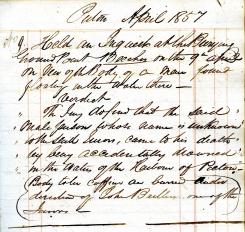 Picton April 1857
9 Held an Inquest at the Burying
Ground Beach on the 9 April
on View of the Body of a man found
floating in the water there –
Verdict
The Jury do find that the said
Male person (whose name is unknown
to the said Jurors, came to his death
by being accidentally drowned
in the Waters of the Harbour of
Body to be Coffined and buried under
direction of John one of the
Jurors –